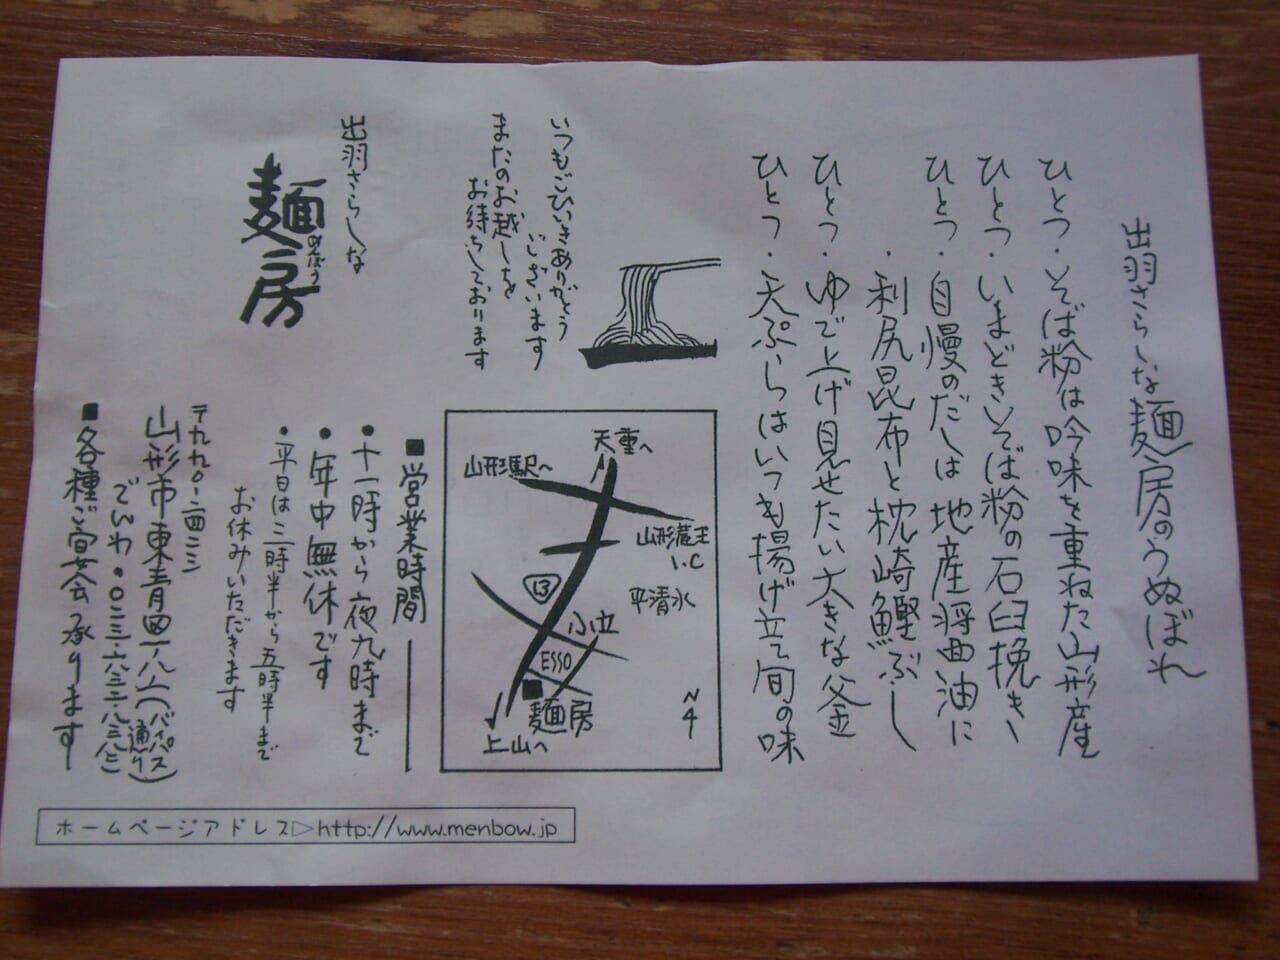 出羽さらしな麺房のうぬぼれ
ひとつ・そば粉は吟味を重ねた山形産
ひとつ・いまどきそば粉の石臼挽き
ひとつ・自慢のだしは地産醤油に
・利尻昆布と枕崎鰹ぶし
ひとつ・ゆで上げ見せたい大きな釜
ひとつ・天ぷらはいつも揚げ立て旬の味
いつもごひいきありがとう
ございます
またのお越しを
お待ちしております
出羽さらしな
麺房
めんぼう
天童へ
山形駅へ
山形蔵王
I.C
平清水
13
小立
ESSO
麺房
上山へ
N
■営業時間
●十一時から夜九時まで
●年中無休です
●平日は三時半から五時半まで
お休みいただきます
山形市東青田
(バイパス通り)
でんわ
■各種ご宴会承ります
ホームページアドレス▷http://www.menbow.jp